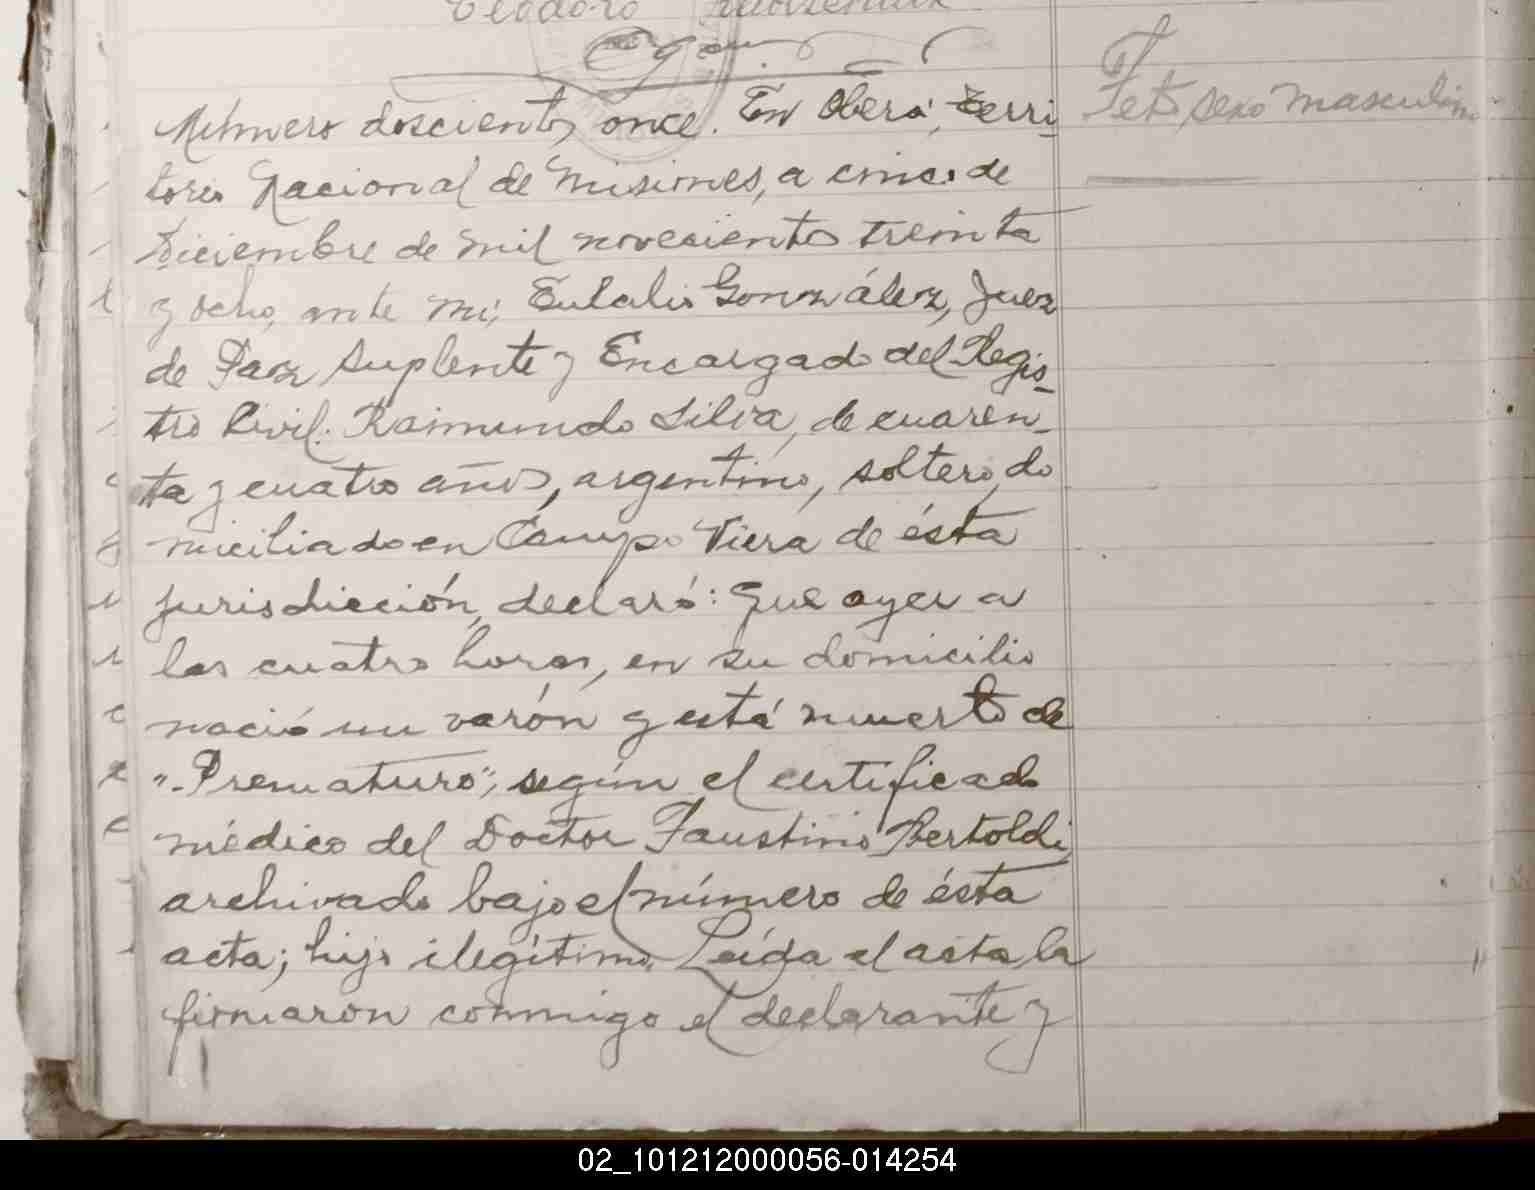 Teodoro
Número doscientos once. En Oberá, Terri-
torio Nacional de Misiones, a cinco de
Diciembre de mil novecientos treinta
y ocho, ante mí, Eulalio González, Juez
de Paz Suplente y Encargado del Regis-
tro Civil: Raimundo Silva, de cuaren-
ta y cuatro años, argentino, soltero, do
miciliado en Campo Viera de ésta
jurisdicción, declaró: Que ayer a
las cuatro horas, en su domicilio
nació un varón y está muerto de
"Prematuro", según el certificado
médico del Doctor Faustino Bertoldi,
archivado bajo el número de ésta
acta; hijo ilegítimo. Leída el acta, la
firmaron conmigo el declarante y
Feto sexo masculino
02_101212000056-014254